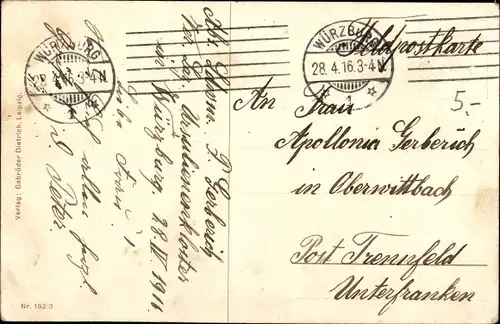 Feldpostkarte
WÜRZBURG
28.4.16.3-4N.
1
WÜRZBURG
28.4.16.3-4N
1
5.-
An Frau
Apollonia Gerberich
in Oberwittbach
Post Trennfeld
Unterfranken
Abs. P. Gerberich
Ursulinenkloster
in Würzburg 28.IV.1916.
Liebe Frau!
allen
Peter.
Verlag: Gebrüder Dietrich, Leipzig.
Nr. 162/3